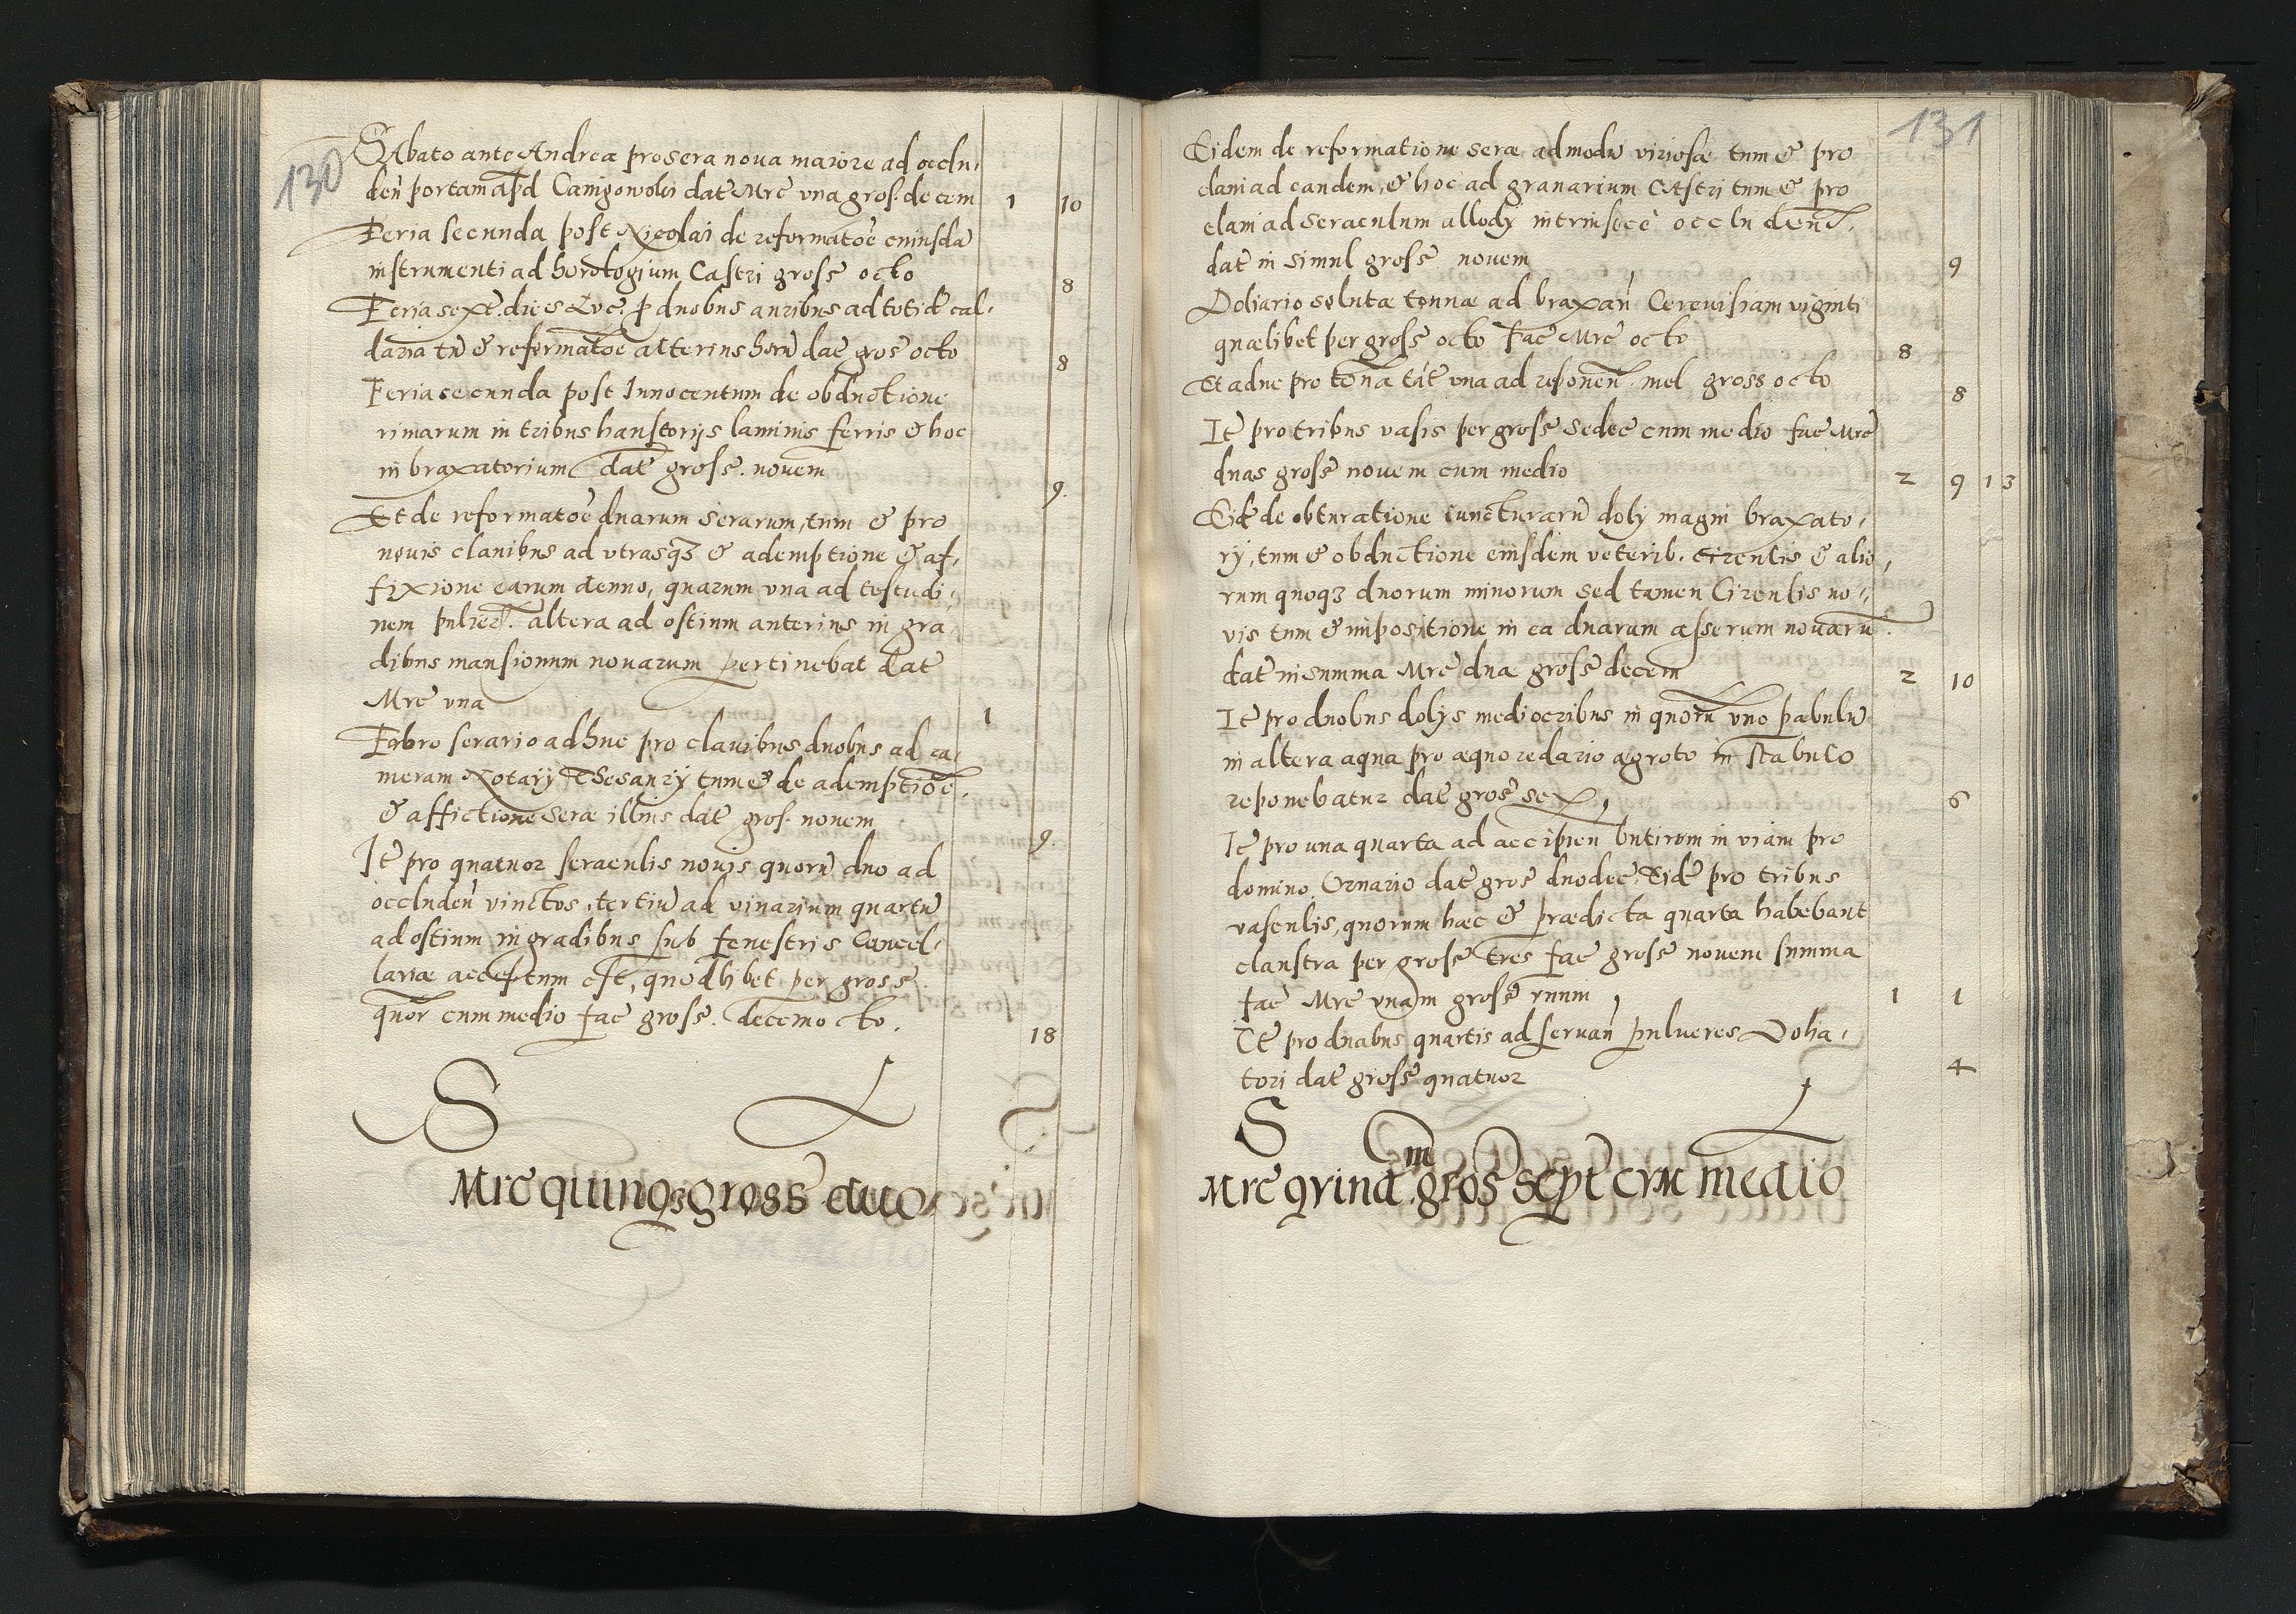 130
SAbato ante Andreæ pro sera nova maiore ad occlu,
den̄ portam apd Canigowolıı dat Mrc̄ vna gros. decem 1 10
Feria secunda post Nicolai de reformatoē cuiusdā
instrumenti ad horologium Castri gross̄ octo 8
Feria sext. dies Luc. p duobus anribus ad totidē cal,
daria tū & reformatoē alterius horū dat gros octo 8
Feria secunda post Innocentum de obductione
rimarum in tribus haustorijs laminis ferris & hoc
in braxatorium dat gross. novem 9.
Et de reformatoē duarum serarum, tum & pro
novis clavibus ad vtrasqз & ademptione & af,
fixione earum denuo, quarum vna ad testudi,
nem pulver. altera ad ostium anterius in gra
dibus mansionum novarum pertinebat dat
Mrc̄ vna 1
Fabro serario adhuc pro clavibus duobus ad ca,
meram Notarij Thesaury tum & de ademptioē.
& affictione seræ illius dat gros. novem 9.
Itē pro quatuor seraculis novis quorū duo ad
occluden̄ vinctos, tertiū ad vinarium quartū
ad ostium in gradibus sub fenestris Cancel,
lariæ acceptum est, quodlibet per gross.
quor cum medio fac gross. decemocto. 18
S L
Mrc̄ quinqз gross duo
131
Eidem de reformatione seræ admodū viziosæ tum & pro
clavi ad eandem, & hoc ad granarium CAstri tum & pro
clavi ad seraculum allody intrinsece occluden̄.
dat in simul gross̄ novem 9
Doliario solutæ tonnæ ad braxan̄ Cerevisiam viginti
quælibet per gross̄ octo fac̄ Mrc̄ octo 8
Et adue pro tona tāt vna ad reponen̄. mel gross octo 8
Itē pro tribus vasis per gross̄ sedec̄ cum medio fac Mrc̄
duas gross̄ novem cum medio 2 9 13
Eidē de obturatione iuncturarū doly magni braxato,
ry, tum & obductione eiusdem veterib. Circulis & alio,
rum quoqз duorum minorum sed tamen Circulis no,,
vis tum & impositione in ea duarum asserum novarū.
dat in summa Mrc̄ duæ gross̄ decem 2 10
Itē pro duobus dolys mediocribus in quorū vno pabulū
in altera aqua pro æquo redario ægroto in stabulo
reponebatur dat gros̄ sex, 6
Itē pro una quarta ad accipien̄ butirum in viam pro
domino Vrnario dat gros duodec̄, Eidē pro tribus
vasculis, quorum hæc & prædicta quarta habebant
claustra per gross̄ tres fac gross̄ novem summa
fac̄ Mrc̄ vnam gross̄ vnum, 1 1
Itē pro duabus quartis ad servan̄ pulveres Dolia,
tori dat gross̄ quatuor 4
S m L
Mrc̄ qvindc̄ gros̄ sept cvm medio